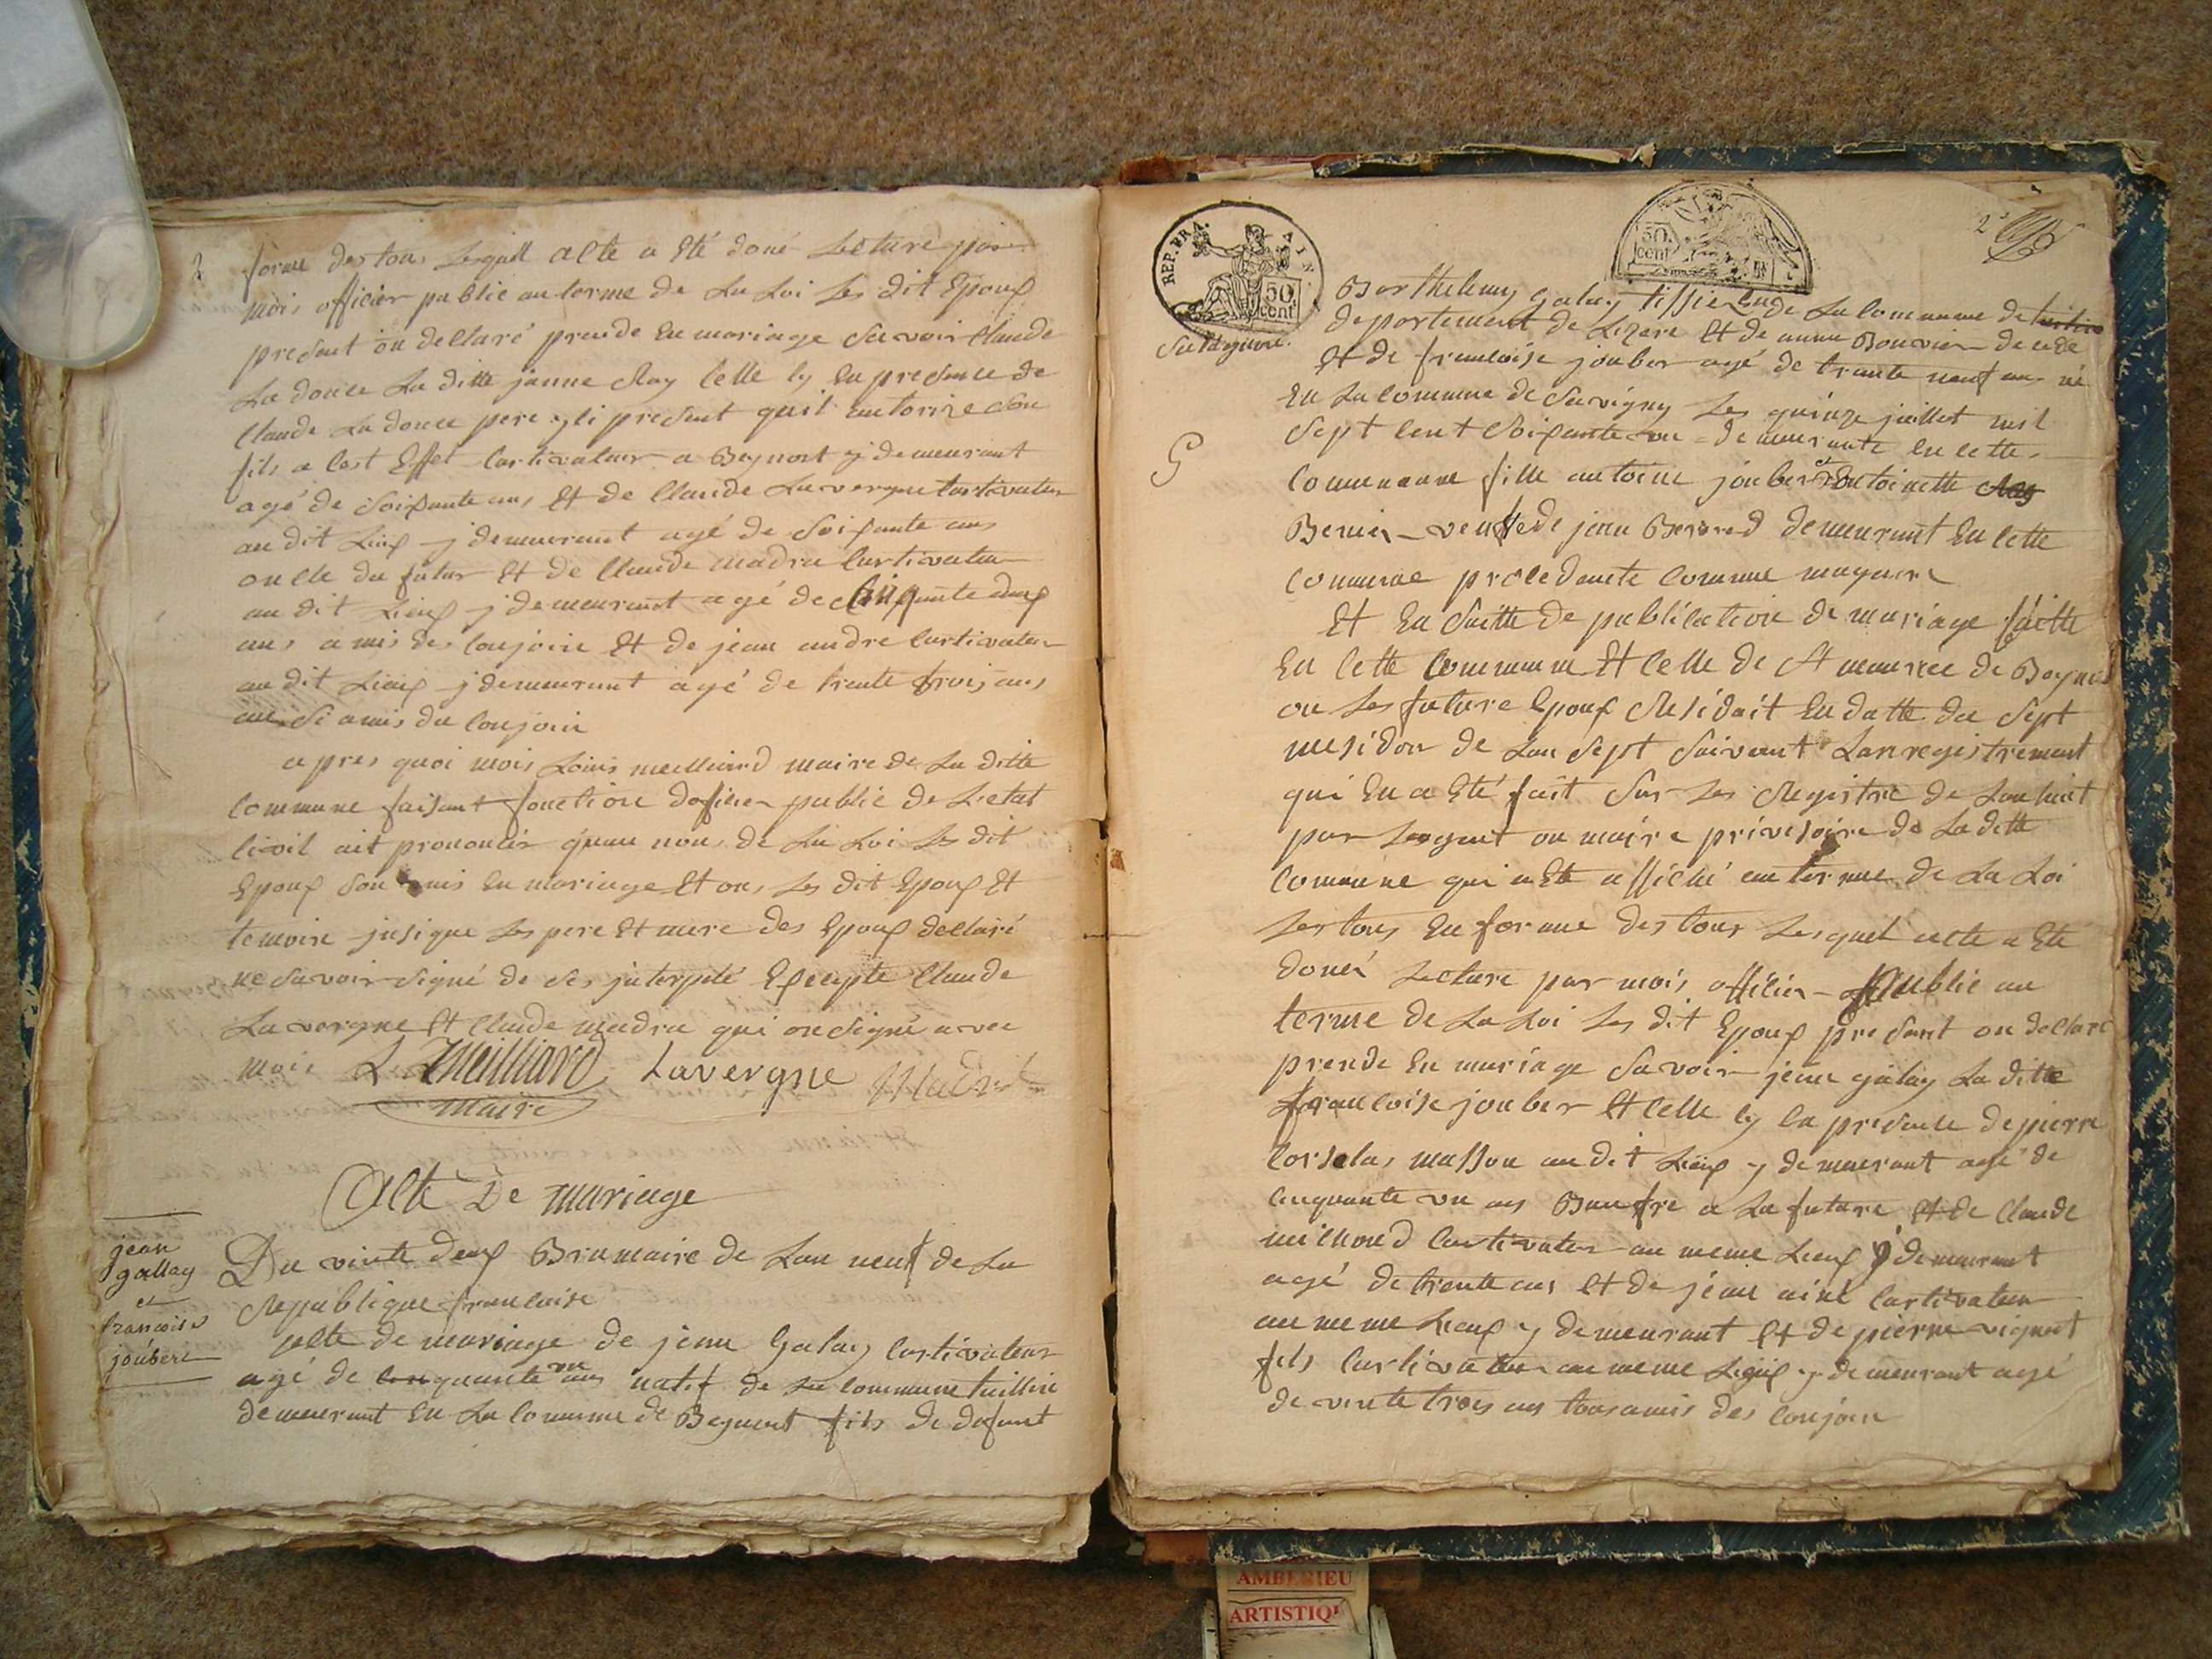 2
forme des tous lesquel alte a Eté doné Lecture par
moi officier public au terme de La Loi les dit Epoux
present on dellaré prende En mariage Savoir Claude
La douce La ditte janne Ray Celle ly En presence de
Claude La douce pere yli present quil autorize son
fils a lest Effet Cartivateur a Beynost y demeurant
agé de Soixante ans Et de Claude Lavergne Cartivateur
au dit Lieux y demeurant agé de Soixante ans
oncle du futur Et de Claude Madru Curtivateur
au dit Lieux y demeurant agé de Cinquante deux
ans amis des Conjoin Et de jean andre Curtivateur
au dit Lieux y demeurant agé de trente trois ans
ausi amis du Conjoin
apres quoi mois Louis meilliard maire de La ditte
Commune faisant fonction doficier public de Letat
livil ait prononcér quau nom de La Loi Les dit
Epoux son unis En mariage Et on Les dit Epoux Et
temoire jusique Les pere Et mere des Epoux dellaré
ne Savoir Signé de Ses jnterpelé Excepte Claude
Lavergne Et Claude madru qui on Signé avec
mois L. Meilliard Lavergne Madru
maire
Alte De mariage
jean
gallay
et
francoise
joubert
Du vinte deux Brumaire de Lan neuf de La
Republique francaise
alte de mariage de jean Galay Cartivateur
agé de Cinquante un ans natif de La Commune
demeurant En La Commune de Beynost fils de defunt
REP. FRA.
AIN
50
cent
50.
cent
2e
Barthelemy Galay tissier En de La Commune de
departement de Lizere Et de anne Bouvier de cede
Et de francoise jouber agé de trante neuf ans né
En La Commune de Savigny Les quinze juillet mil
Sept cent Soixante un demeurante En cette
G
Commune fille antoine jouber et antoinette
Bernier veuve de jean Berard demeurant En Cette
Commune procedante Comme mayeure
Et En Suitte de publication de mariage faitte
En Cette Commune Et Celle de St maurice de Beynost
ou Les future Epoux Residait En datte du Sept
mesidor de Lan Sept Suivant Lanregistrement
qui En a Eté fait Sur Les Registre de Lan huit
par Lagent ou maire privisoire de La ditte
Commune qui a Eté affiché au terme de La Loi
Les tous En forme des tous Lesquel acte a Eté
donér Lecture par mois officier public au
terme de La Loi Les dit Epoux presant on dellaré
prende En mariage Savoir jean galay La ditte
francoise jouber Et Celle ly En presence de pierre
Corselas masson au dit Lieux y demeurant agé de
Cinquante un ans Baufre a La future Et de Claude
milliond Cartivateur au meme Lieux y demeurant
agé de trente ans Et de jean ainé Cartivateur
au meme Lieux y demeurant Et de pierre vignet
fils Curtivateur au meme Lieux y demeurant agé
de vinte trois ans tous amis des Conjoin
AMBERIEU
ARTISTIQ